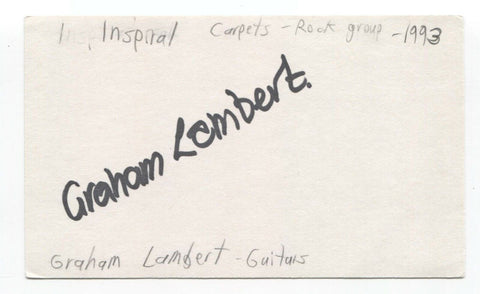 Inspiral Carpets - Rock group - 1993
Graham Lambert.
Graham Lambert - Guitars